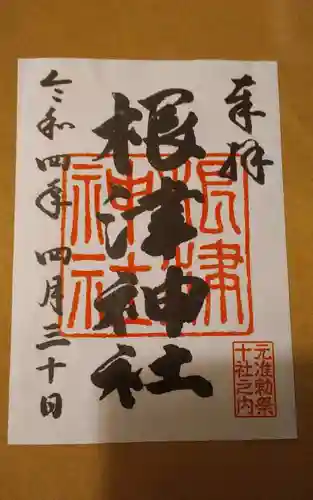 奉拝
根津神社
令和四年四月三十日
根津
神社
元准勅祭
十社之内